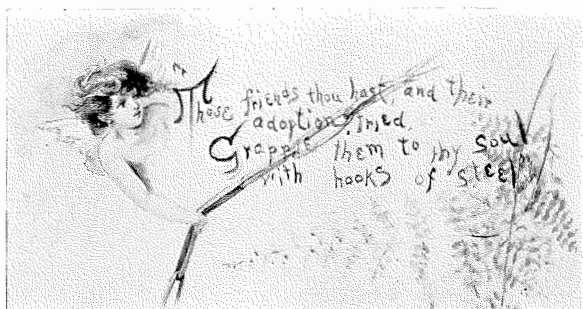 Those friends thou hast, and their
adoption tried,
Grapple them to thy soul
with hooks of steel